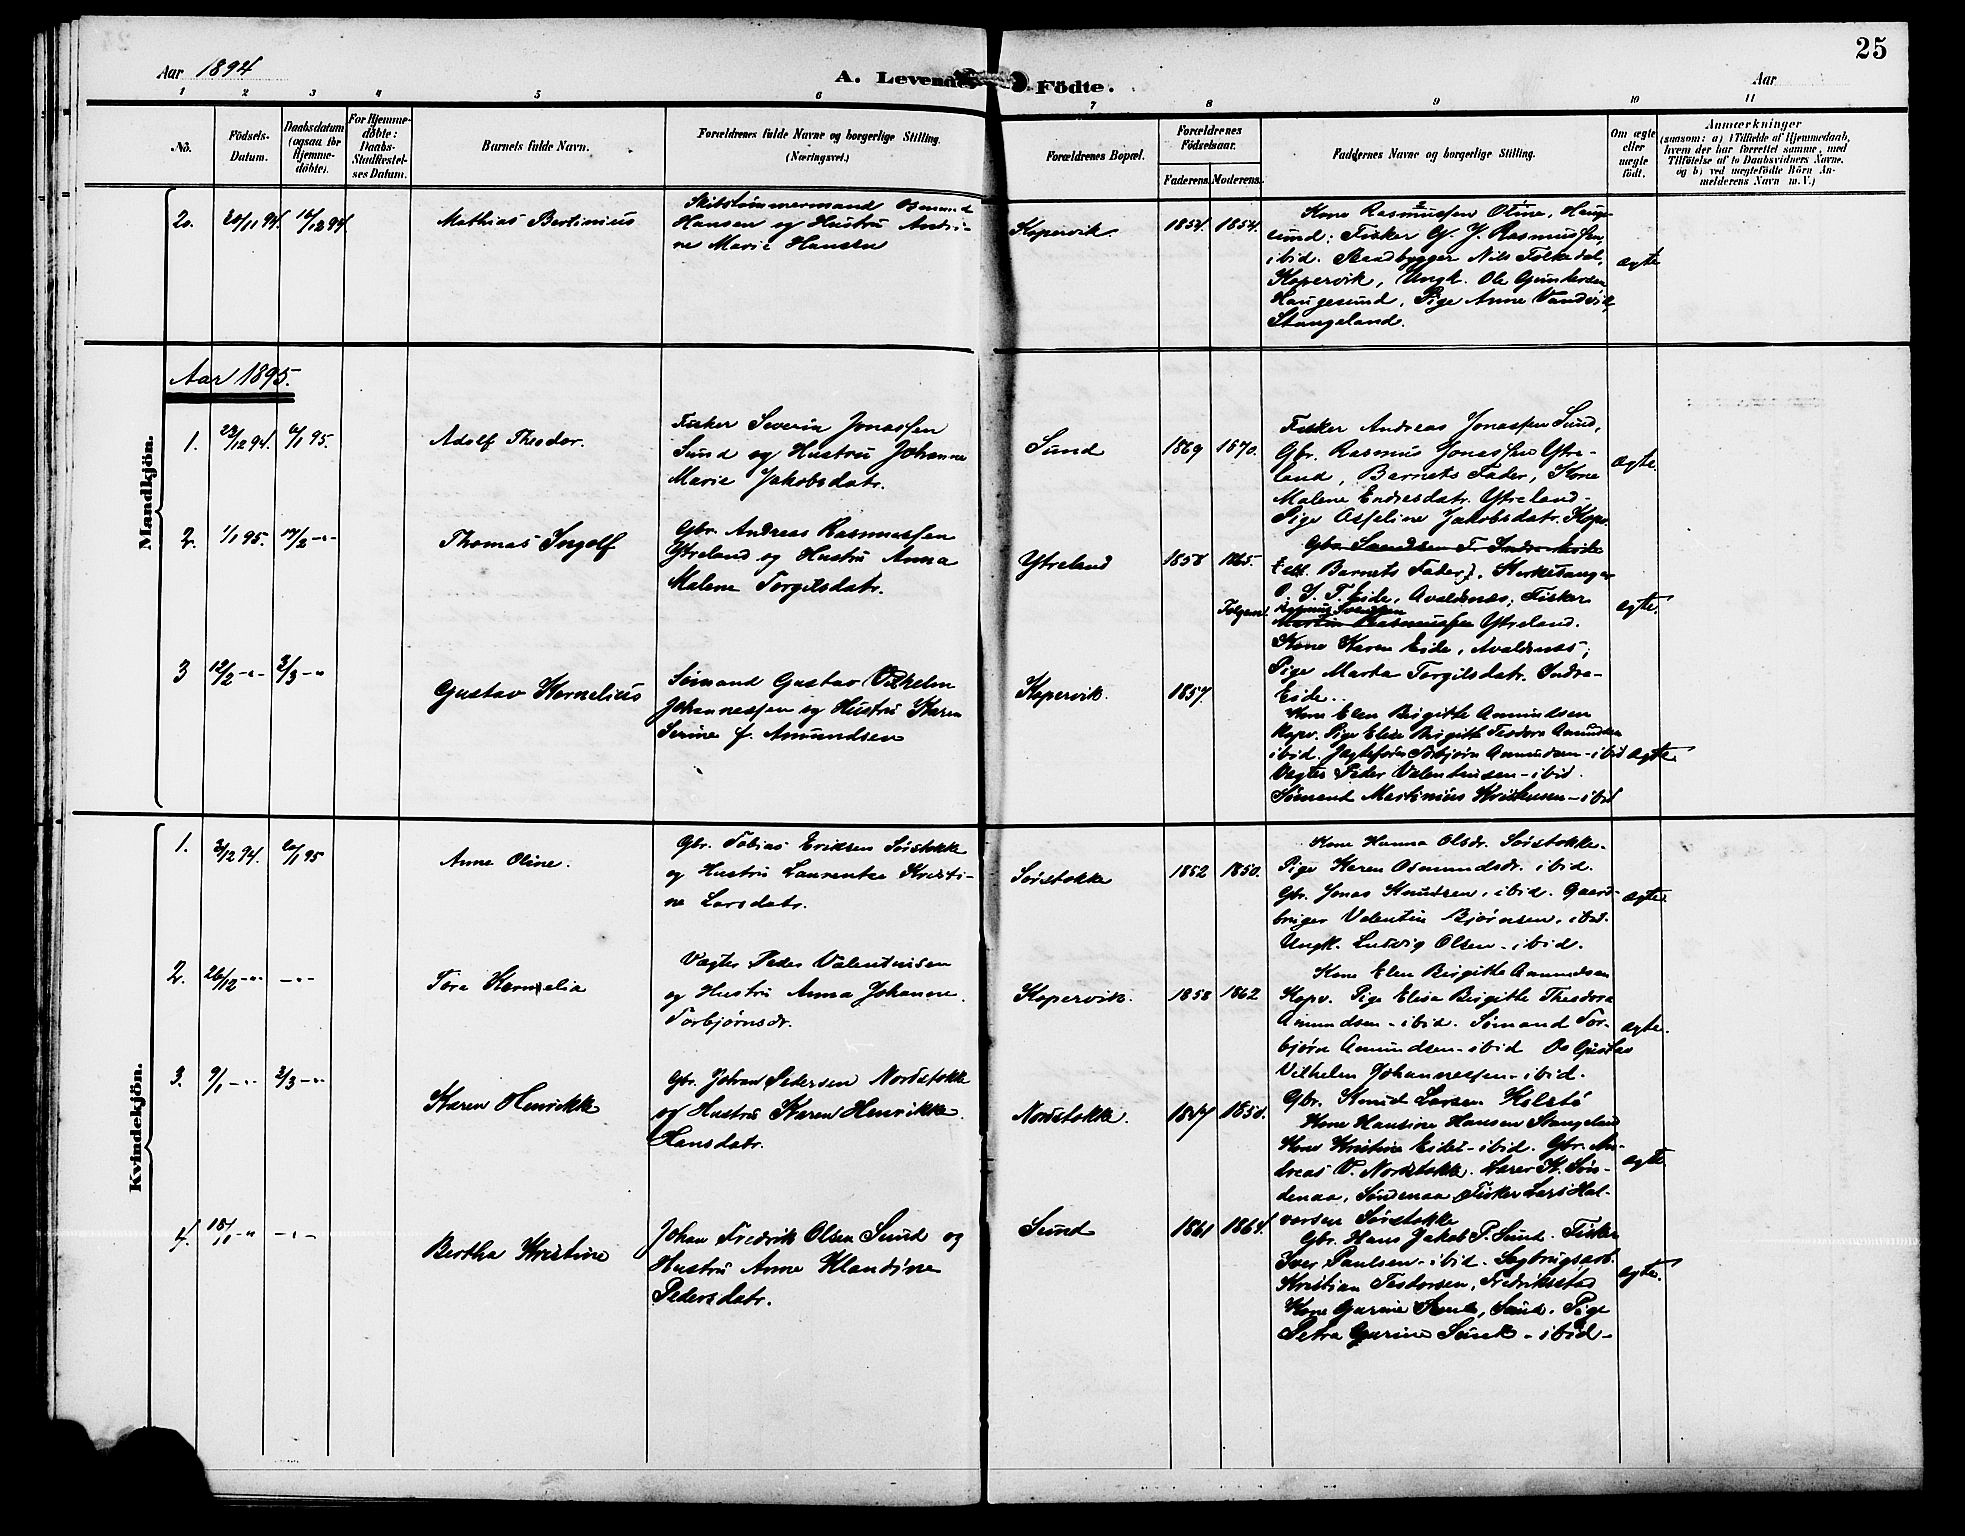 25
Aar 1894
A. Levende Födte.
Aar
1 2 3 4 5 6 7 8 9 10 11
No.
Födsels-
Datum.
Daabsdatum
(ogsaa for
Hjemme-
döbte).
For Hjemme-
döbte:
Daabs-
Stadfæstel-
ses Datum.
Barnets fulde Navn.
Forældrenes fulde Navne og borgerlige Stilling.
(Næringsvei.)
Forældrenes Bopæl.
Forældrenes
Födselsaar.
Faderens. Moderens.
Faddernes Navne og borgerlige Stilling.
Om ægte
eller
uægte
födt.
Anmærkninger
(saasom: a) i Tilfælde af Hjemmedaab,
hvem der har forrettet samme, med
Tilföielse af to Daabsvidners Navne,
og b) ved uægtefödte Börn An-
melderens Navn m. V.)
Mandkjön.
2. 20/11 94. 16/12 94 Mathias Bertinius
Skibstømmermand Osmund
Hansen og Hustru Andri-
ne Marie Hansen
Kopervik. 1854. 1854.
Kone Rasmussen Oline, Hauge-
sund: Fisker G. J. Rasmussen,
ibid. Baadbygger Nils Folkedal,
Kopervik, Ungk. Ole Gundersen
Haugesund, Pige Anne Vandvik,
Stangeland.
ægte
Aar 1895.
1. 23/12 94. 6/1 95. Adolf Theodor.
Fisker Severin Jonassen
Sund og Hustru Johanne
Marie Jakobsdatr.
Sund 1869 1870.
Fisker Andreas Jonassen Sund,
Gbr. Rasmus Jonassen Ytre-
land, Barnets Fader, Kone
Malene Endresdatr. Ytreland-
Pige Asseline Jakobsdatr. Kopv.
ægte.
2. 1/1 95. 17/2 -"- Thomas Ingolf
Gbr. Andreas Rasmussen
Ytreland og Hustru Anna
Malene Torgilsdatr.
Ytreland 1858 1865.
Gbr. Svendsen T. Indre Eide
Barnets Fader). Kirkesanger
O. S. T. Eide, Avaldsnes; Fisker
Rasmus Svendsen
Martin Rasmussen Ytreland.
Kone Karen Eide, Avaldsnes;
Pige Marta Torgilsdatr. Indre-
Eide..
ægte.
3 12/2 -"- 3/3 -" Gustav Kornelius
Sømand Gustav Vilhelm
Johannessen og Hustru Karen
Serine f. Amundsen
Kopervik. 1857.
Kone Elen Birgitte Amundsen
Kopv. Pige Elise Birgith Teodora Amundsen
ibid. Jagtefører Torbjørn Amundsen - ibid
Vægter Peder Valentinsen - ibid.
Sømand Martinius Kristensen - ibid
ægte.
Kvindekjön.
1. 3/12 94. 6/1 95 Anne Oline.
Gbr. Tobias Eriksen Sørstokke
og Hustru Laurentze Kristi-
ne Larsdatr.
Sørstokke 1852 1850.
Kone Hanna Olsdr. Sørstokke-
Pige Karen Osmundsdr. ibid.
Gbr. Jonas Knudsen, ibid. Gaard-
bruger Valentin Bjørnsen, ibid.
Ungk. Ludvig Olsen - ibid.
ægte.
2. 26/12 -"- -"- Tora Kornelia
Vægter Peder Valentinsen
og Hustru Anna Johanne
Torbjørnsdr.
Kopervik. 1858 1862
Kone Elen Birgitte Amundsen
Kopv. Pige Elise Birgitte Theodora
Amundsen - ibid. Sømand Tor-
bjørn Amundsen - ibid Do Gustav
Vilhelm Johannessen - ibid.
ægte.
3. 9/1 -"- 3/3 -"- Karen Henrikke
Gbr. Johan Pedersen Nordstokke
og Hustru Karen Henrikke
Hansdatr.
Nordstokke. 1847 1850.
Gbr. Knud Larsen Kolstø
Kone Hansine Hansen Stangeland
Kone Kristine Eide - ibid. Gbr. An-
dreas P. Nordstokke. Lærer K. Søn-
denaa, Søndenaa Fisker Lars Hal-
vorsen Sørstokke
ægte
4. 18/1 -" -"- Bertha Kristine
Johan Fredrik Olsen Sund og
Hustru Anne Klandine
Pedersdatr.
Sund 1861 1864.
Gbr. Hans Jakob P. Sund. Fisker
Iver Paulsen - ibid. Sagbrugsarb.
Kristian Teodorsen, Fredriksstad
Kone Gurine Sund, Sund. Pige
Petra Gurine Sund - ibid -
ægte.